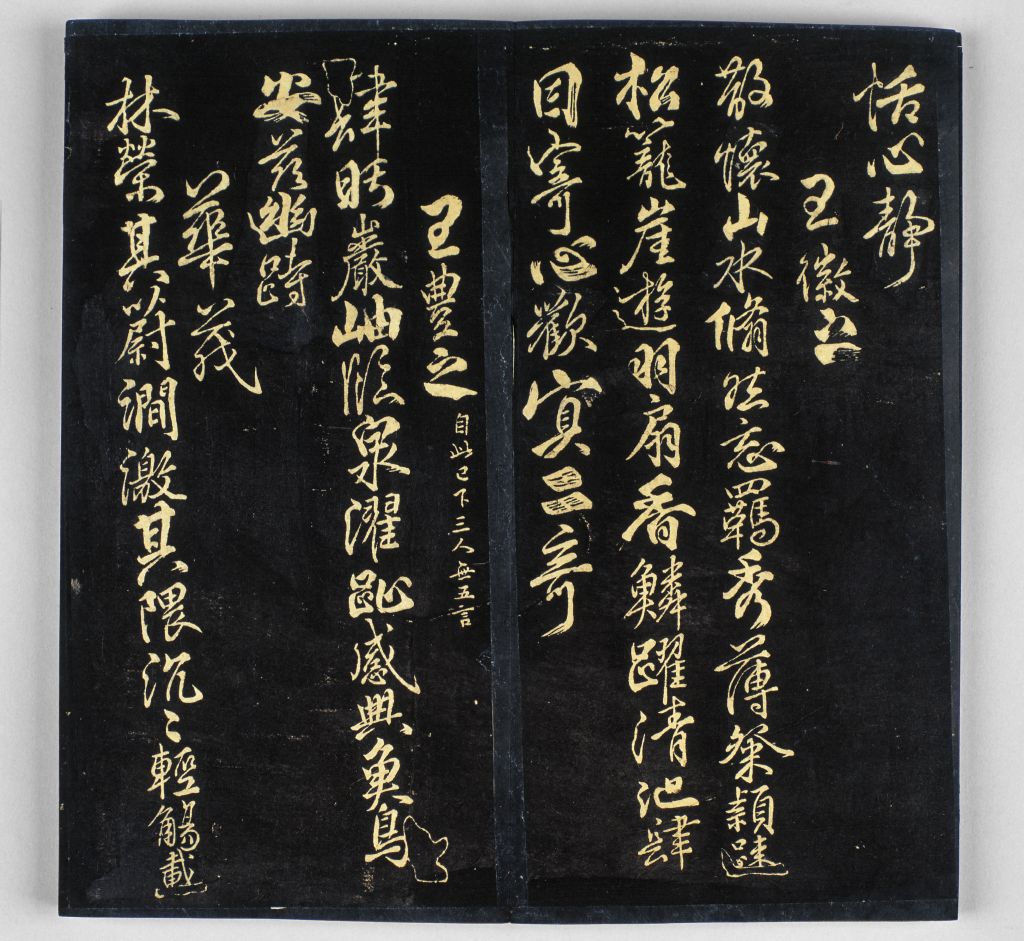 恬心靜
王徽之
散懷山水翛然忘羈秀薄粲穎踈
松籠崖遊羽扇香鱗躍清池肆
目寄心歡冥二奇
王豐之 自此已下三人無五言
肆眄巖岫臨泉濯趾感興魚鳥
安茲幽跱
華茂
林榮其蔚澗激其隈汎〻輕觴載